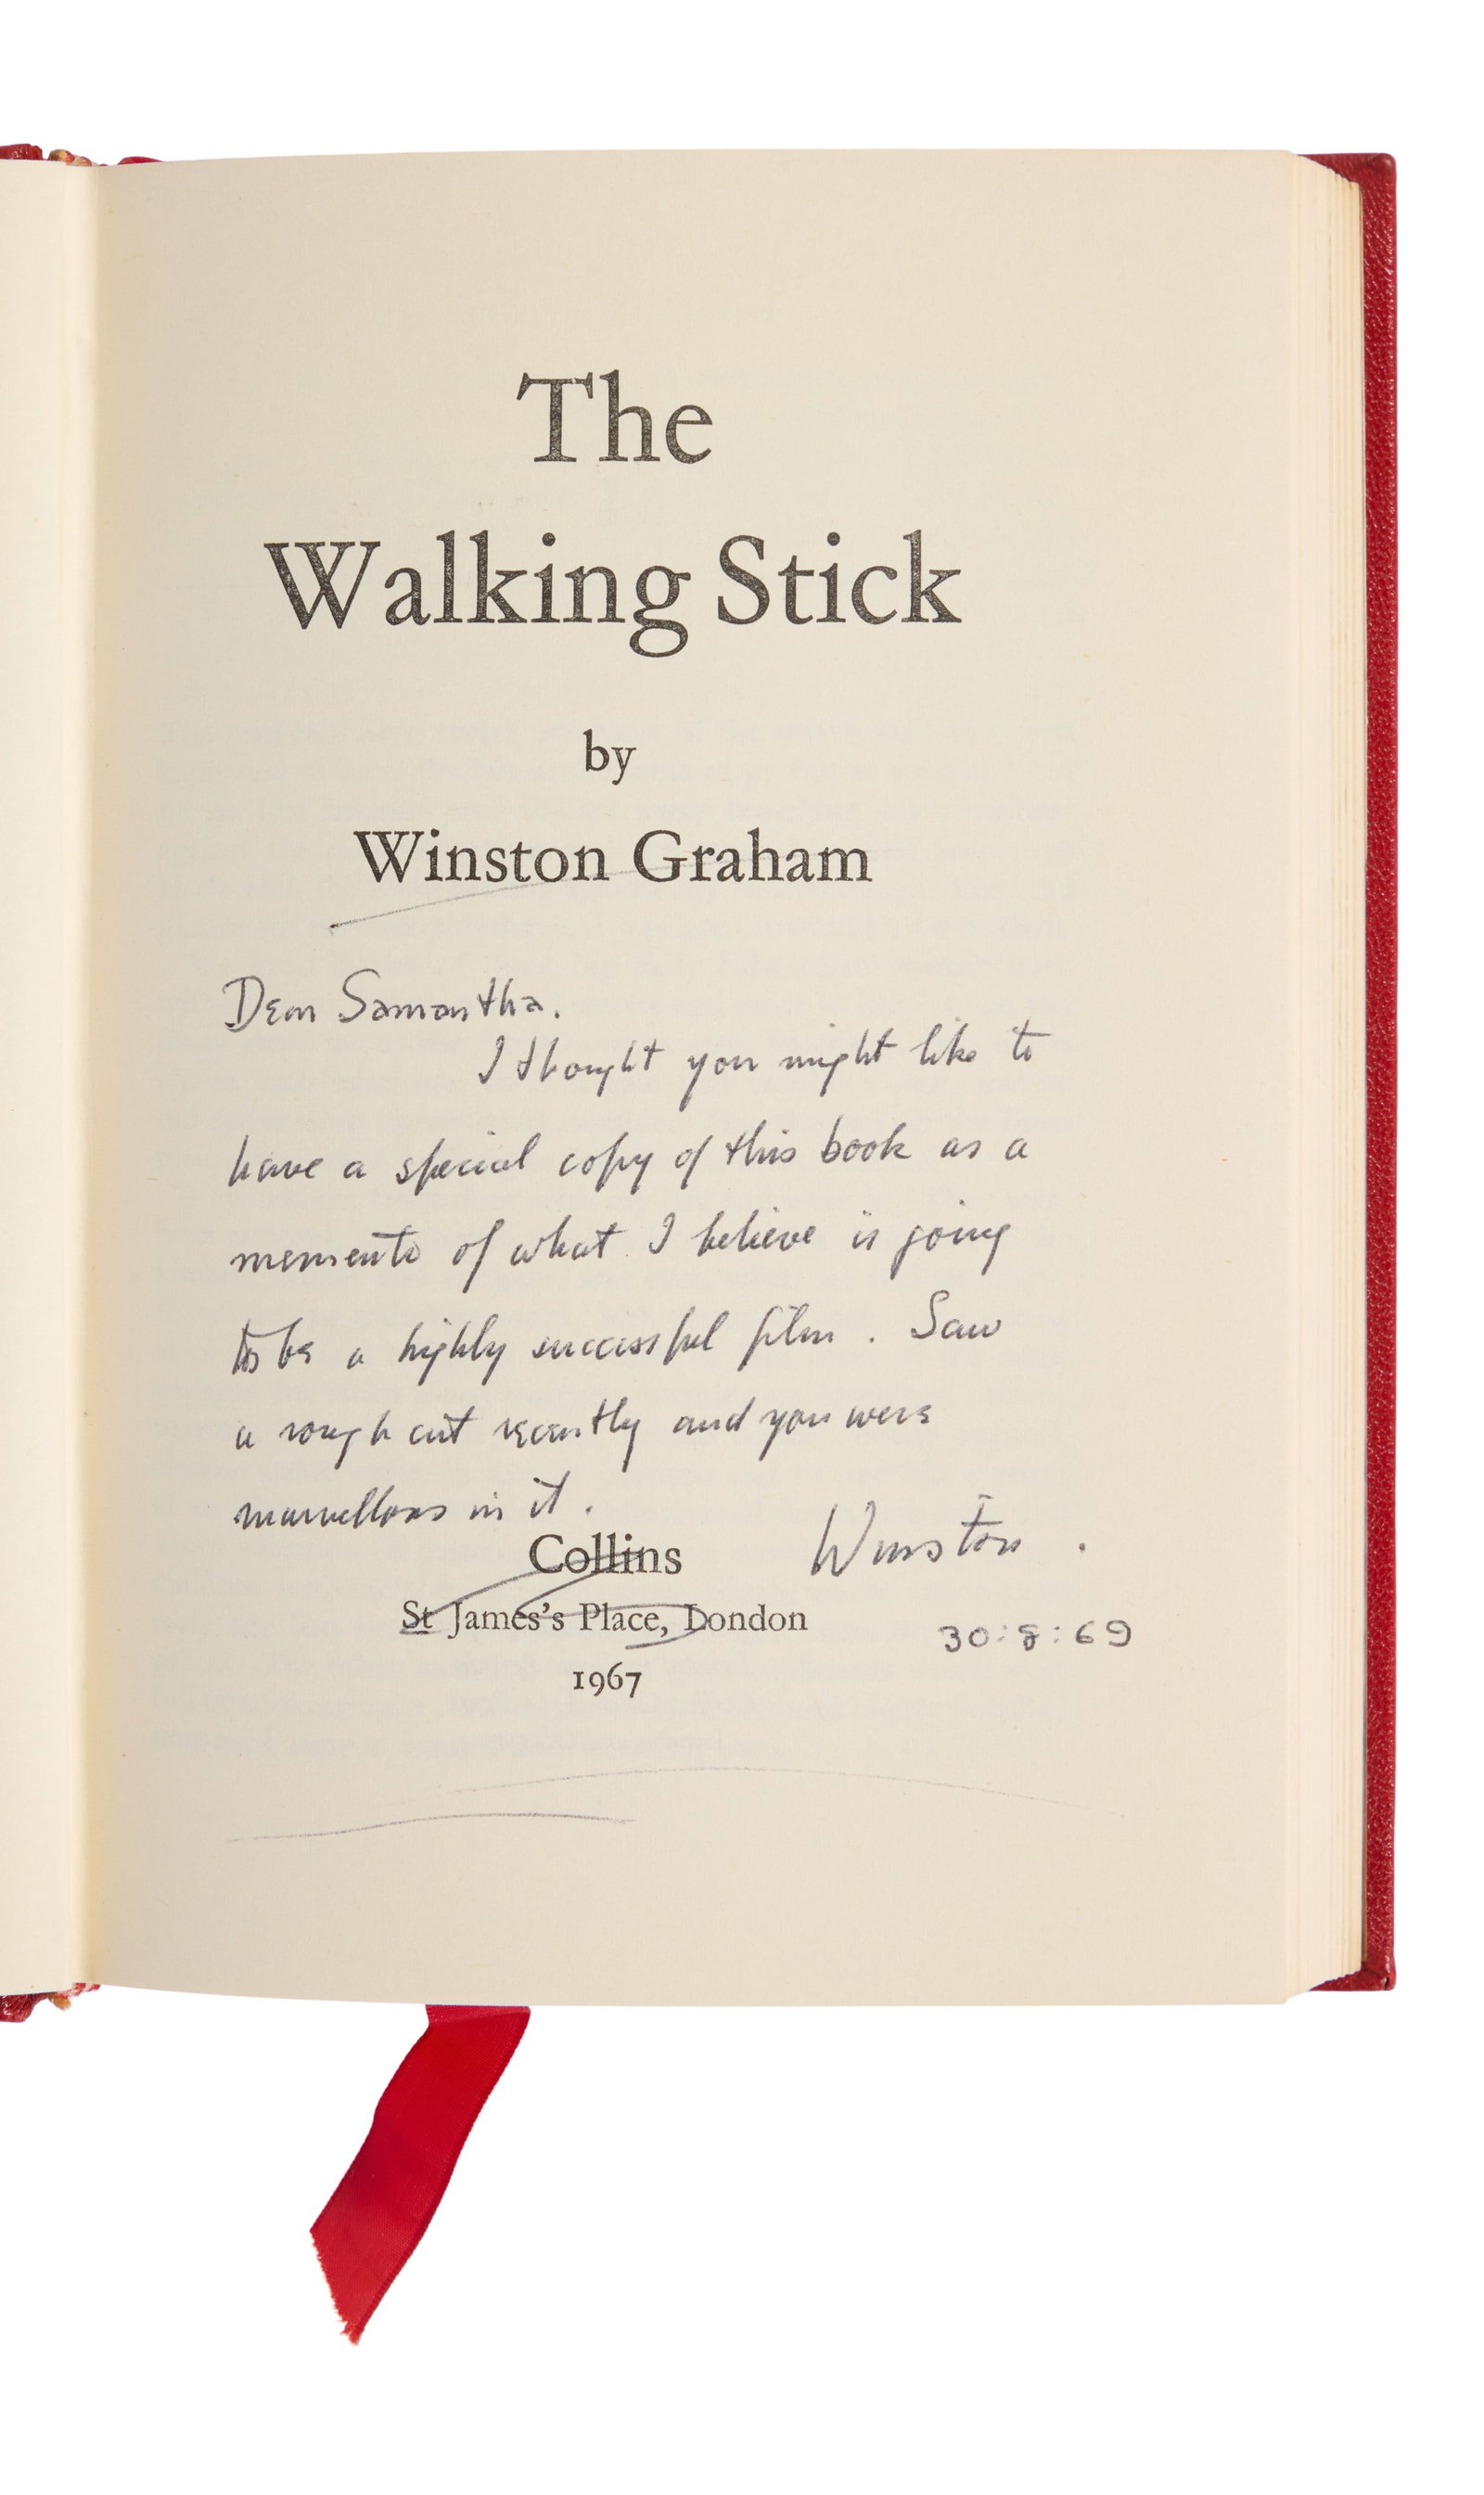 The
Walking Stick
by
Winston Graham
Dear Samantha.
I thought you might like to
have a special copy of this book as a
memento of what I believe is going
to be a highly successful film. Saw
a rough cut recently and you were
marvellous in it.
Collins
Winston.
St James's Place, London
30:8:69
1967